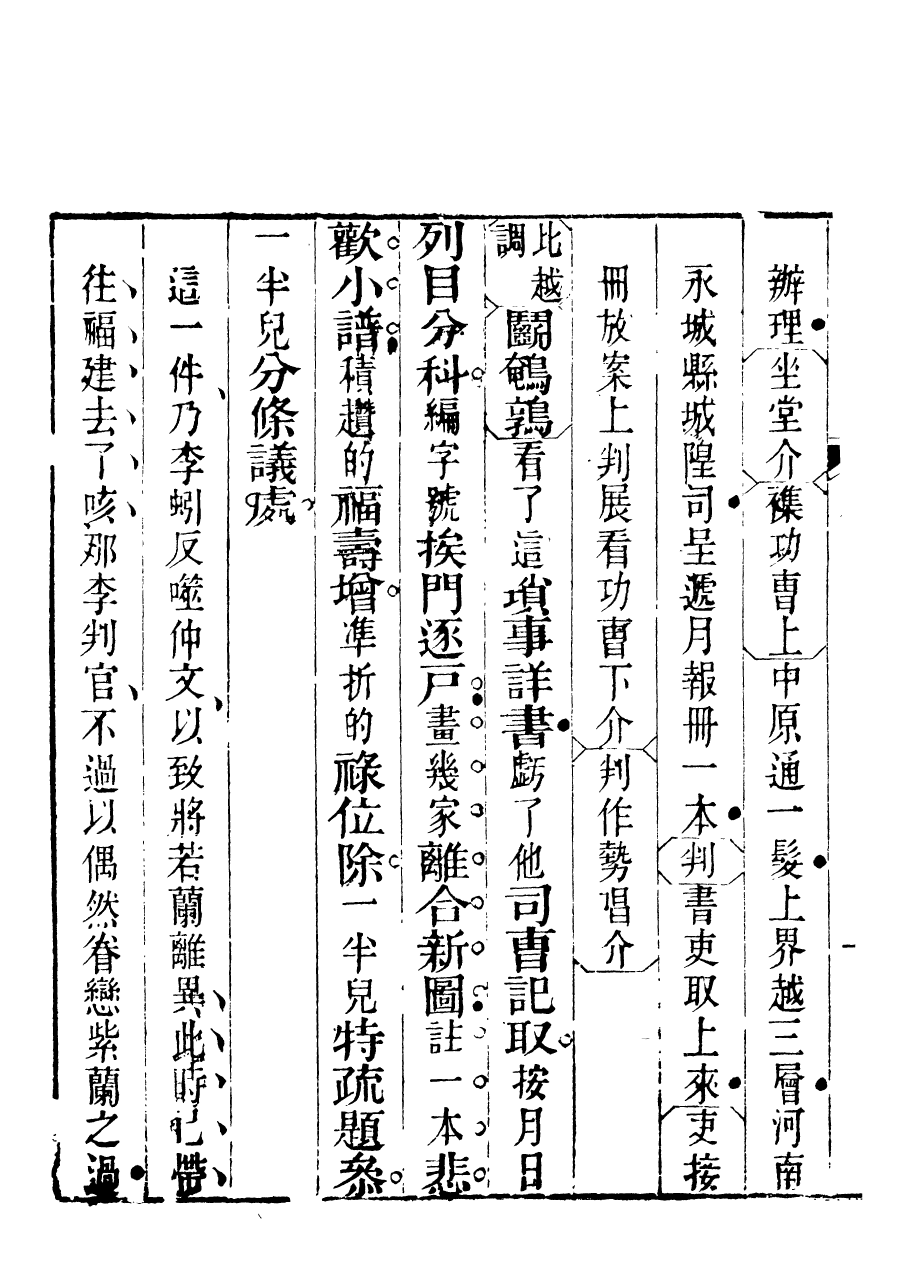 辦理坐堂介襍功曹上中原通一髮上界越三層河南
永城縣城隍司呈遞月報冊一本判書吏取上來吏接
冊放案上判展看功曹下介判作勢唱介
越調比鬬鵪鶉看了這瑣事詳書虧了他司曹記取按月日
列目分科編字號挨門逐戸畫幾家離合新圖註一本悲
歡小譜積趲的福壽增凖折的祿位除一半兒特疏題叅
一半兒分條議處
這一件乃李蚓反噬仲文以致將若蘭離異此時已帶
徃福建去了咳那李判官不過以偶然眷戀紫蘭之過